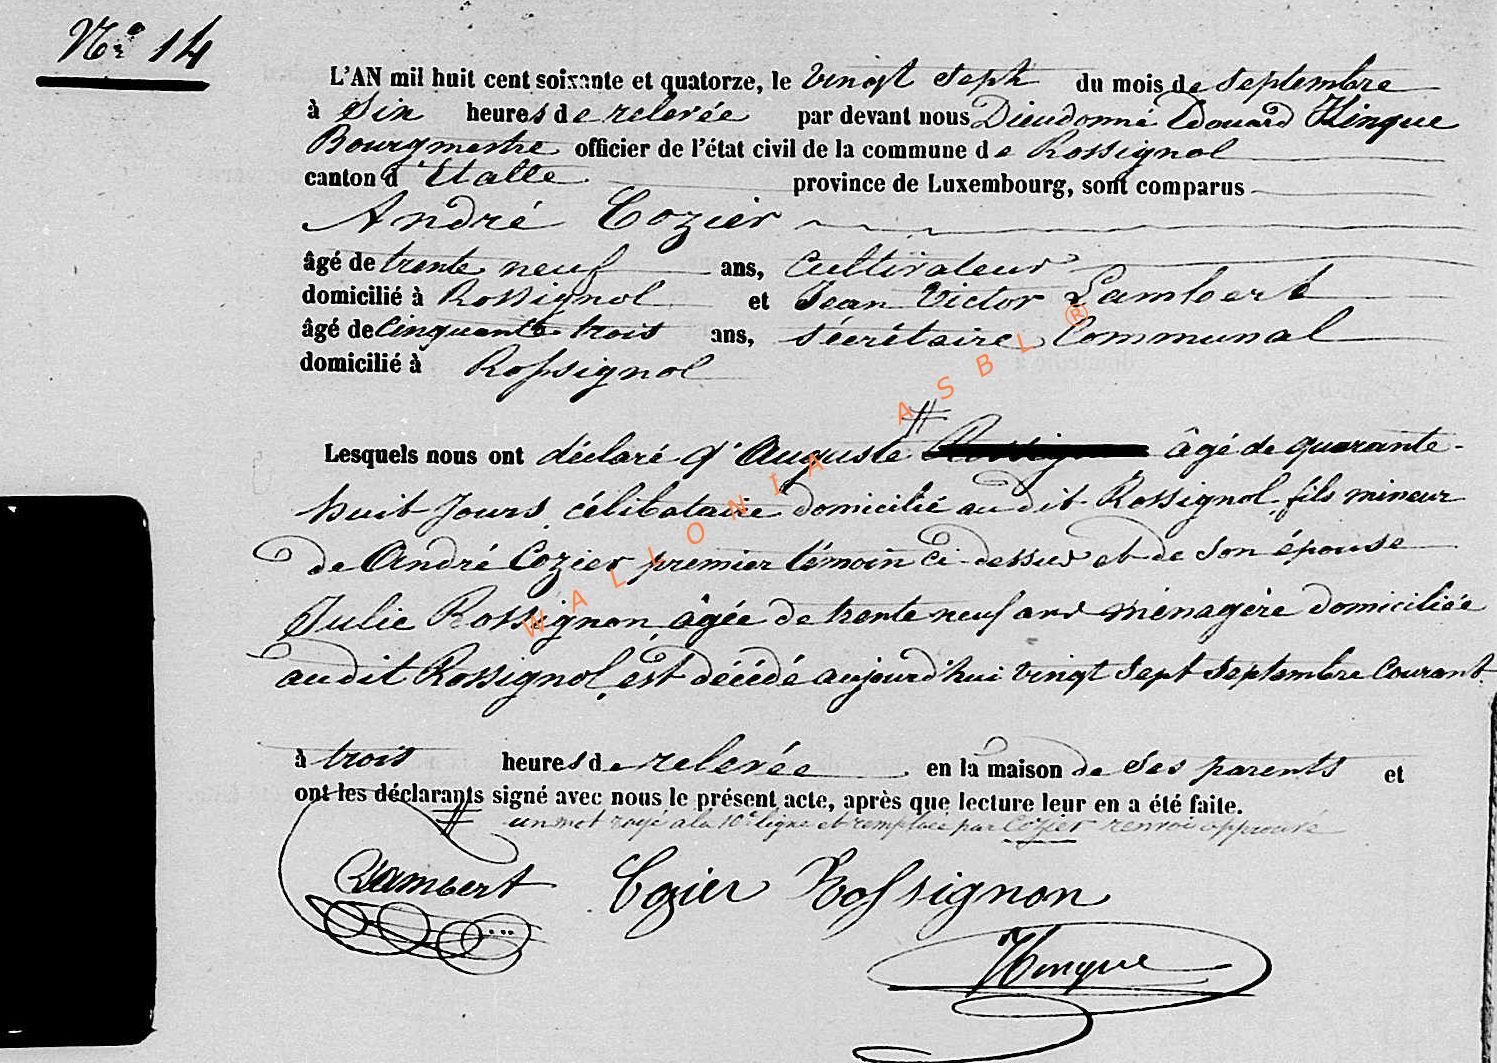 Nro 14
L'AN mil huit cent soixante et quatorze, le vingt sept du mois de septembre
à six heures de relevée par devant nous Dieudonné Edouard Hinque
Bourgmestre officier de l'état civil de la commune de Rossignol
canton d'Etalle province de Luxembourg, sont comparus
André Cozier
âgé de trente neuf ans, Cultivateur
domicilié à Rossignol et Jean Victor Lambert
âgé de cinquante trois ans, sécrétaire Communal
domicilié à Rossignol
#
Lesquels nous ont déclaré q' Auguste âgé de quarante-
huit Jours célibataire domicilié au dit Rossignol, fils mineur
de André Cozier premier témoin ci-dessus et de son épouse
Julie Rossignon âgée de trente neuf ans ménagère domiciliée
au dit Rossignol, est décédé aujourd'hui vingt sept septembre Courant
à trois heures de relevée en la maison de ses parents et
ont les déclarants signé avec nous le présent acte, après que lecture leur en a été faite.
# un mot rayé à la 10e ligne et remplacé par Cozier renvoi approuvé
Lambert Cozier Rossignon
Hinque
WALLONIA ASBL ®